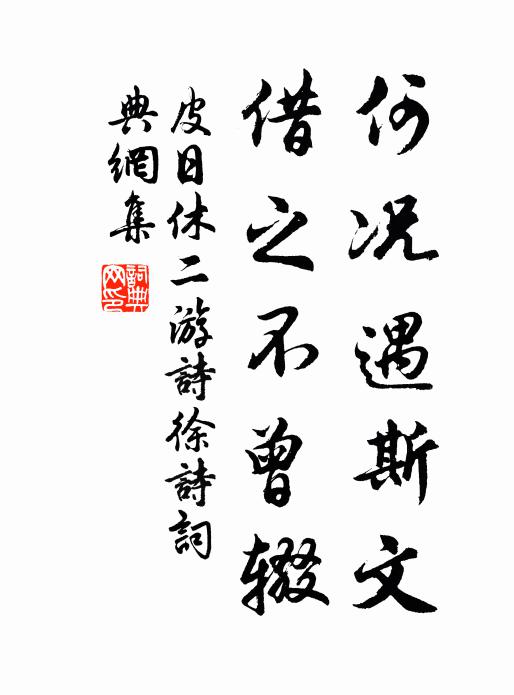 何况遇斯文
借之不曾辍
皮日休二游詩徐詩詞
典網集
詞典網印